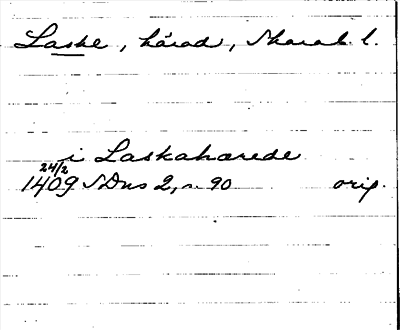 Laske, härad, Skarab. l.
i Laskahærede
24/2
1409 SDns 2, n 90 orig.